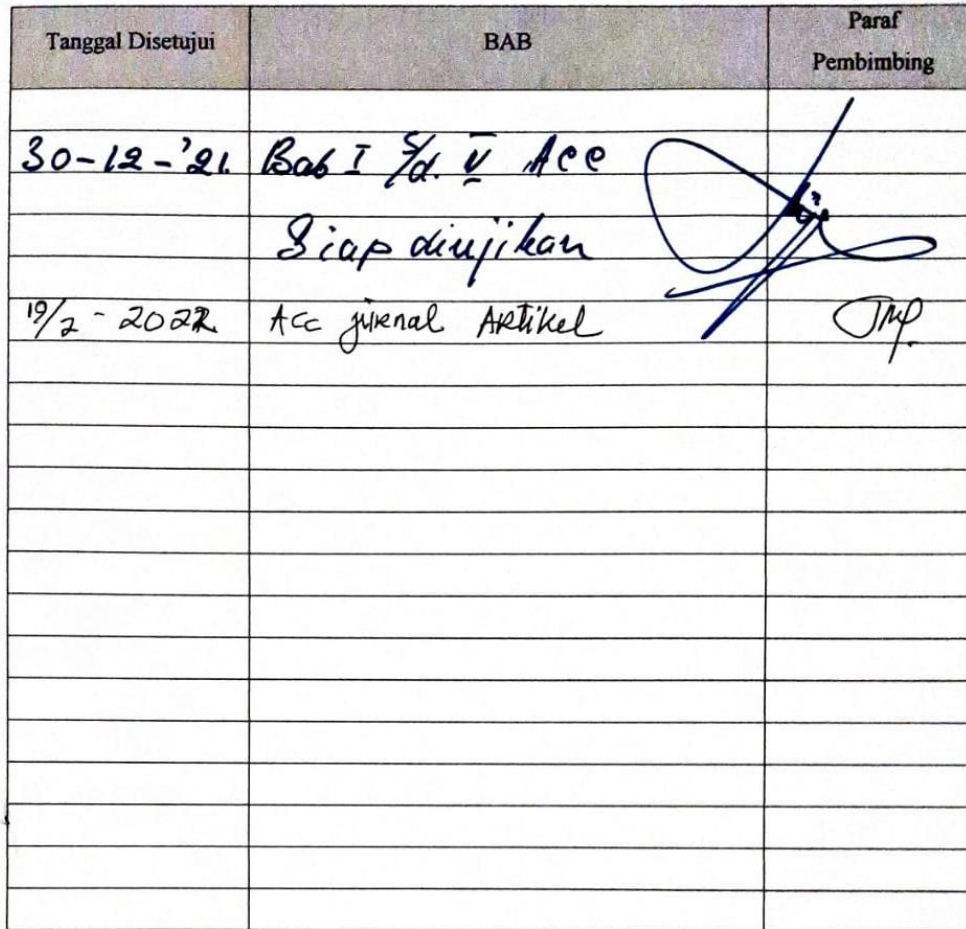 Tanggal Disetujui BAB Paraf Pembimbing
30-12-'21. Bab I s/d. V Acc
Siap diujikan
19/2 - 2022 Acc jurnal Artikel